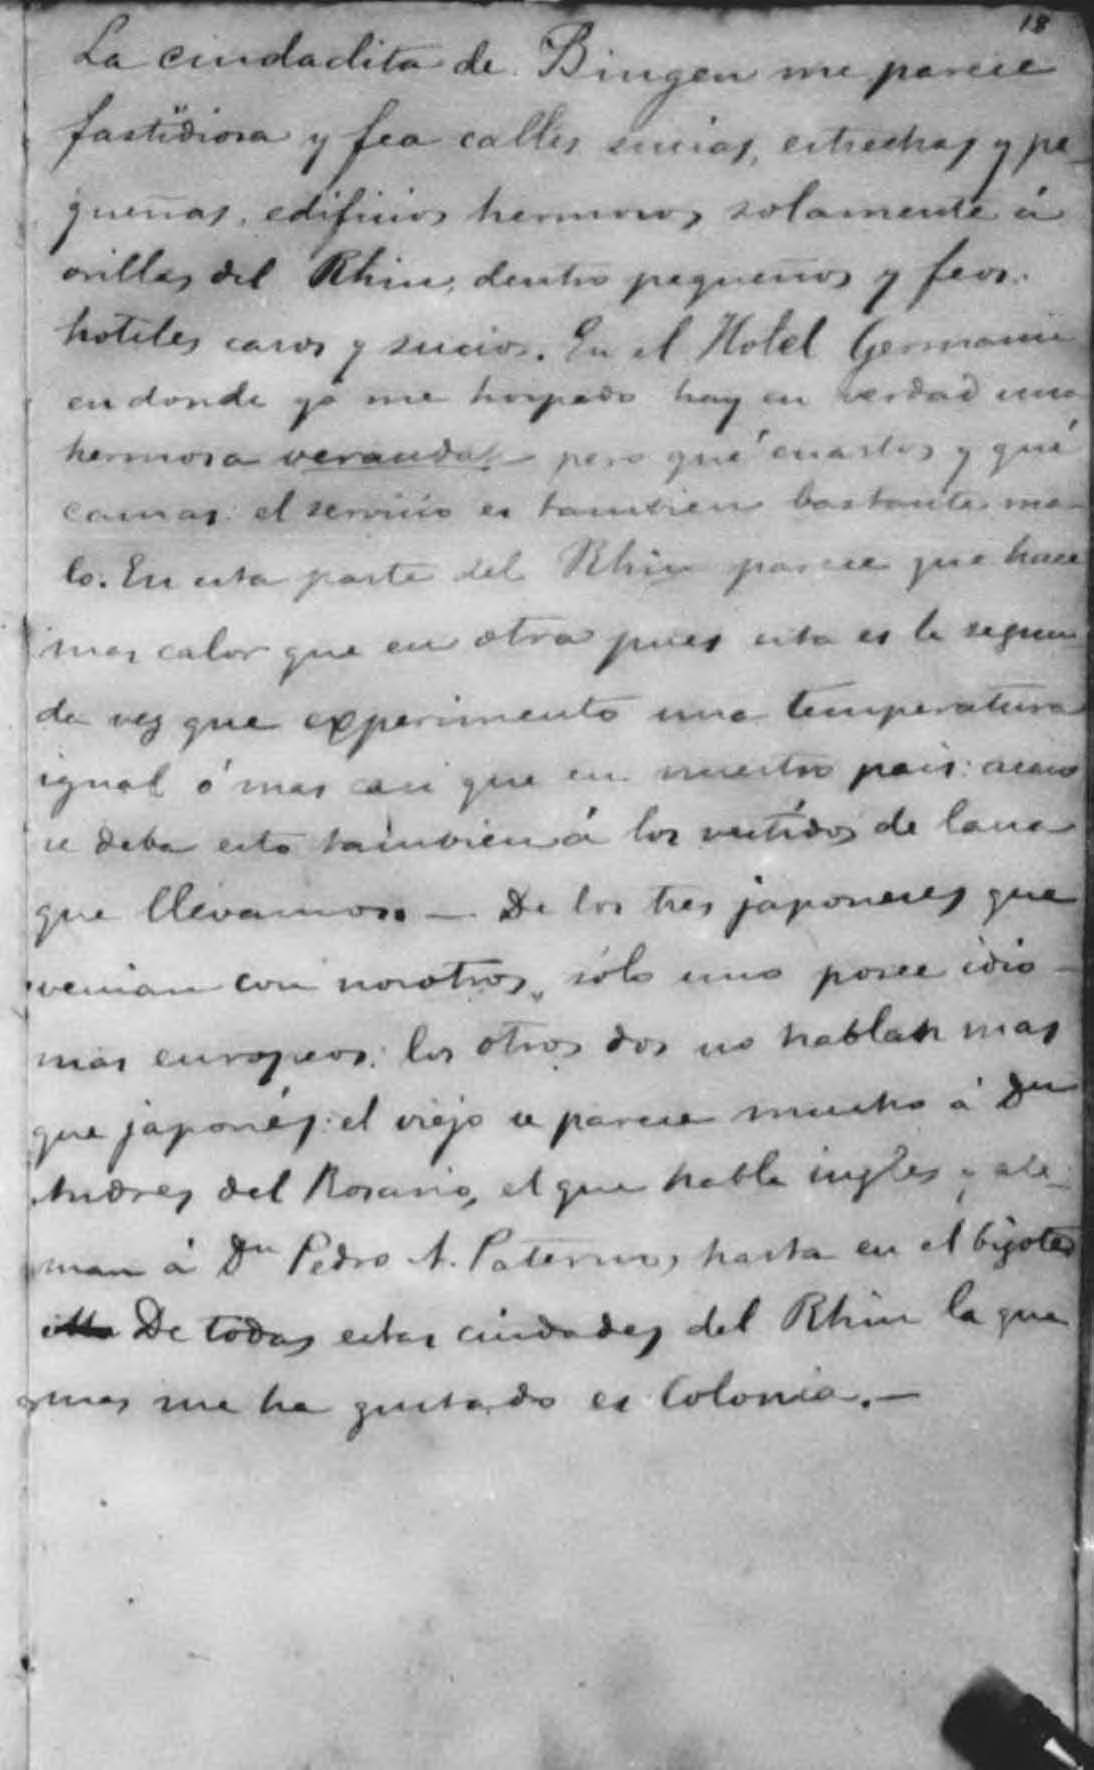 18
La ciudadita de Bingen me parece
fastidiosa y fea calles sucias, estrechas y pe-
queñas, edificios hermosos solamente á
orillas del Rhin, dentro pequeños y feos.
hoteles caros y sucios. En el Hotel Germania
en donde yo me hospedo hay en verdad una
hermosa veranda, pero qué cuartos y qué
camas: el servicio es tambien bastante ma-
lo. En esta parte del Rhin parece que hace
mas calor que en otra pues esta es la segun
da vez que experimento una temperatura
igual ó mas casi que en nuestro pais: acaso
se deba esto tambien á los vestidos de lana
que llevamos. — De los tres japoneses que
venian con nosotros, sólo uno posee idio-
mas europeos: los otros dos no hablan mas
que japonés: el viejo se parece mucho á Dn
Andres del Rosario, el que habla ingles y ale-
man á Dn Pedro A. Paterno, hasta en el bigote
De todas estas ciudades del Rhin la que
mas me ha gustado es Colonia. —